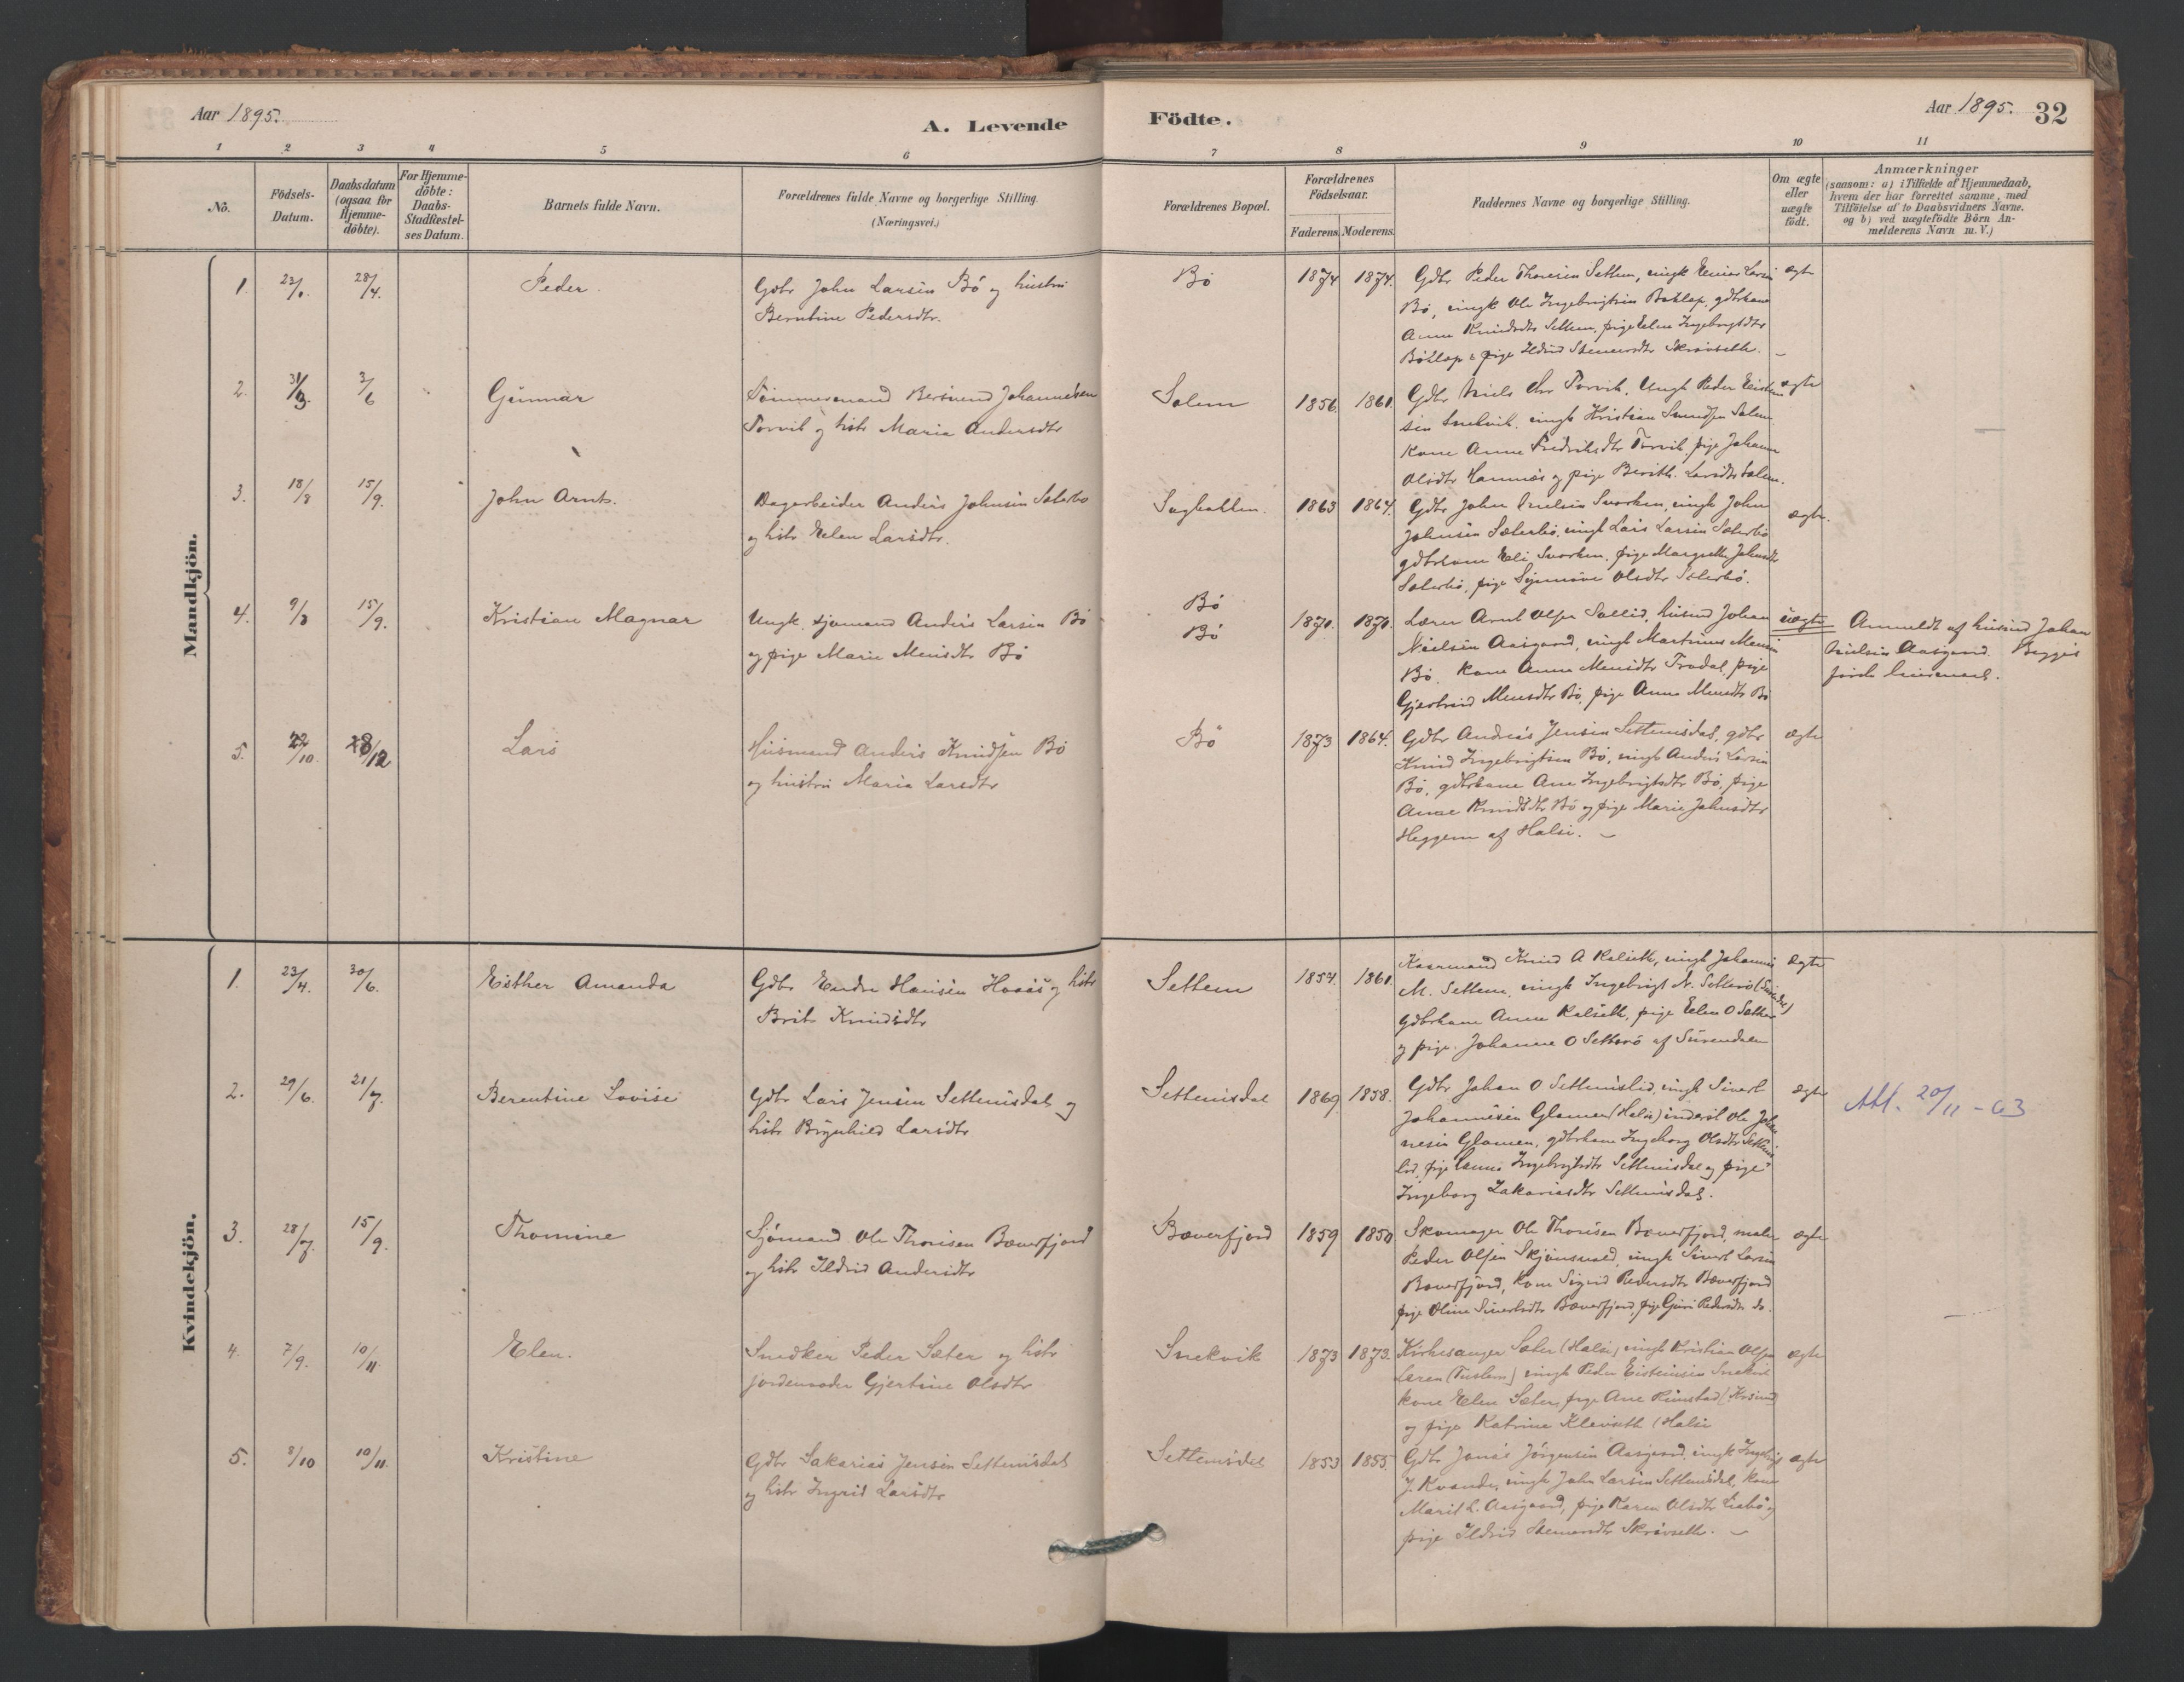 Aar 1895.
A. Levende Födte.
Aar 1895. 32
1 2 3 4 5 6 7 8 9 10 11
No.
Födsels-
Datum.
Daabsdatum
(ogsaa for
Hjemme-
döbte).
For Hjemme-
döbte:
Daabs-
Stadfæstel-
ses Datum.
Barnets fulde Navn.
Forældrenes fulde Navne og borgerlige Stilling.
(Næringsvei.)
Forældrenes Bopæl.
Forældrenes
Födselsaar.
Faderens. Moderens.
Faddernes Navne og borgerlige Stilling.
Om ægte
eller
uægte
födt.
Anmærkninger
(saasom: a) i Tilfælde af Hjemmedaab,
hvem der har forrettet samme, med
Tilföielse af to Daabsvidners Navne.
og b) ved uægtefödte Börn An-
melderens Navn m. V.)
Mandkjön.
1. 28/4. Peder.
Gdbr John Larsen Bö og hustru
Berntine Pedersdtr.
Bö 1874 1874.
Gdbr Peder Thoresen Settem, ungk Larsen
Bö, ungk Ole Ingebrigtsen Böklep, gdbrkone
Anne Knudsdtr Settem, pige Elen Ingebrigtsdtr
Böklep & pige Ildrid Skrövseth.
ægte
2. 31/3. 3/6 Gunnar
Tömmermand Bersvend Johannessen
Torvik og hstr Maria Andersdtr
Solem 1856. 1861.
Gdbr Niels Chr Torvik, Ungk Peder Eisten
sen Snekvik, ungk Kristian Solem
Kone Anne Fredriksdtr Torvik, pige Johanne
Olsdtr Hamnes og pige Berith Larsdtr Solem.
ægte
3. 18/8 15/9. John Arnt.
Dagarbeider Anders Johnsen Sæterbö
og hstr Elen Larsdtr.
1863 1864.
Gdbr John Nielsen Svorken, ungk John
Johnsen Sæterbö, ungk Lars Larsen Sæterbö
gdbrkone Eli Svorken, pige Margrethe Johnsdtr
Sæterbö, pige Synnöve Olsdtr Sæterbö.
ægte.
4. 9/8 15/9. Kristian Magnar
Ungk. sjömand Anders Larsen Bö
og pige Marie Monsdtr Bö
Bö
Bö
1870. 1870.
Lærer Arnt Olsen husmd Johan
Nielsen Aasgaard, ungk Martinus Monsen
Bö. Kone Anne Monsdtr Trodal, pige
Gjertrud Monsdtr Bö, pige Anne Monsdtr Bö
uægte
Anmeldt af husmd Johan
Nielsen Aasgaard. Begges
förste leiermaal.
5. 22/10. 28/12 Lars
Husmand Anders Knudsen Bö
og hustru Maria Larsdtr
Bö 1873 1864.
Gdbr Andreas Jensen Settemsdal, gdbr
Knud Ingebrigtsen Bö, ungk Anders Larsen
Bö, gdbrkone Ane Ingebrigtsdtr Bö, pige
Anne Knudsdtr Bö og pige Marie Johnsdtr
Heggem af Halse.
ægte
Kvindekjön.
1. 23/4. 30/6. Esther Amanda
Gdbr Endre Hansen Hoaas og hstr
Brit Knudsdtr
Settem 1854. 1861.
Kaarmand Knud A Kalseth, ungk Johannes
M. Settem, ungk Ingebrigt N.
Gdbrkone Anne Kalseth, pige Elen O
og pige Johanne O af Surendalen
ægte
2. 29/6. 21/7. Berentine Lovise
Gdbr Lars Jensen Settemsdal og
hstr Brynhild Larsdtr
Settemsdal 1869. 1858.
Gdbr Johan O Settemslid, ungk Sivert
Johannesen Glamen (Halse) inderst Ole Johan
nesen Glamen, gdbrkone Ingeborg Olsdtr Settems
lid, pige Ingebrigtsdtr Settemsdal og pige
Ingeborg Zakariasdtr Settemsdal.
ægte
Att. 20/11 - 63
3. 28/7. 15/9. Thomine
Sjömand Ole Thoresen Bæverfjord
og hstr Ildrid Andersdtr
Bæverfjord 1859 1850
Skomager Ole Thoresen Bæverfjord, maler
Peder Olsen ungk Sivert Larsen
Bæverfjord, Kone Sigrid Pedersdtr Bæverfjord
pige Oline Sivertsdtr Bæverfjord, pige Guri Pedersdtr do.
ægte
4. 7/9. 10/11. Elen.
Snedker Peder Sæter og hstr
jordemoder Gjertine Olsdtr
Snekvik 1873 1873.
Kirkesanger Sæter (Halse) ungk Kristian Olsen
Leren (Tustern) ungk Peder Eistensen Snekvik
kone Elen Sæter, pige Ane Rimstad (Krsund)
og pige Katrine Klevseth (Halse
ægte
5. 8/10 10/11. Kristine
Gdbr Sakarias Jensen Settemsdal
og hstr Ingrid Larsdtr
Settemsdal 1853 1855.
Gdbr Jonas Jörgensen Aasgaard, ungk Ingebrigt
J. Kvande, ungk John Larsen Settemsdal, kone
Marit L. Aasgaard, pige Karen Olsdtr og
pige Ildrid Skrövseth.
ægte